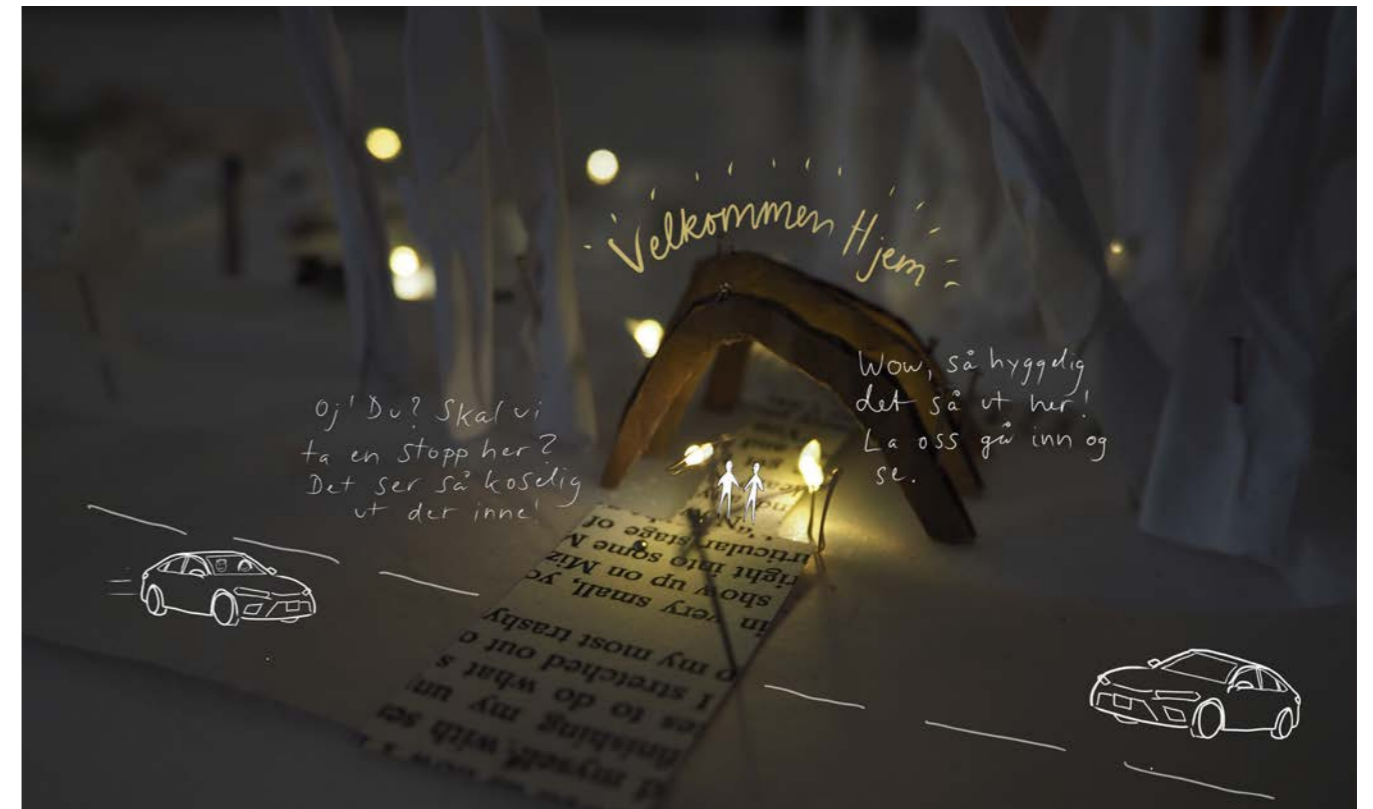 Velkommen Hjem
Oj! Du? Skal vi
ta en stopp her?
Det ser så koselig
ut der inne!
Wow, så hyggelig
det så ut her!
La oss gå inn og
se.
myself, with
finishing my un
es to do what s
I stretched out o
my most trashy
in very small, yo
show up on Miz
right into some M
rticular stage of